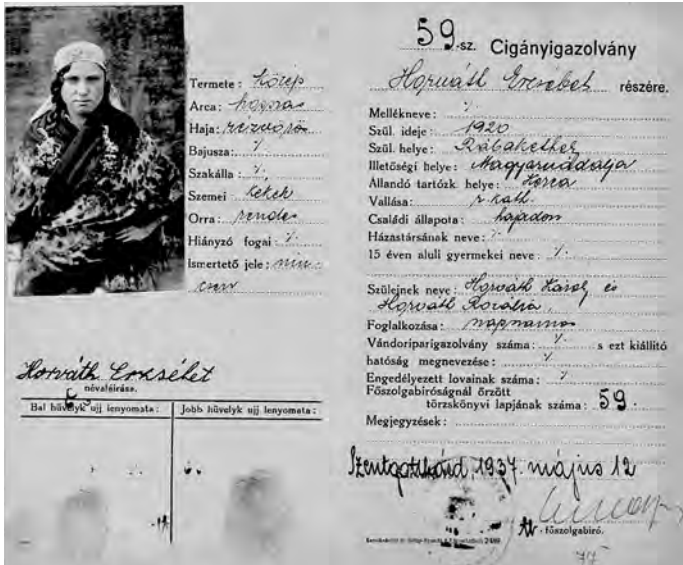 Termete: közép
Arca: hosszas
Haja: rézvörös
Bajusza: ·/·
Szakálla: ·/·
Szemei kékek
Orra: rendes
Hiányzó fogai ·/·
Ismertető jele: nin-
csen
Horváth Erzsébet
névaláírása.
Bal hüvelyk ujj lenyomata:
Jobb hüvelyk ujj lenyomata:
59.-sz. Cigányigazolvány
Horváth Erzsébet részére.
Mellékneve: ·/·
Szül. ideje: 1920
Szül. helye: Rábakethely
Illetőségi helye: Magyarnádalja
Állandó tartózk. helye:
Vallása: r. kath.
Családi állapota: hajadon
Házastársának neve: ·/·
15 éven aluli gyermekei neve: ·/·
Szülejnek neve: Horváth Károly és
Horváth Rozália
Foglalkozása: napszámos
Vándoriparigazolvány száma: ·/· s ezt kiállító
hatóság megnevezése: ·/·
Engedélyezett lovainak száma: ·/·
Főszolgabíróságnál őrzött
törzskönyvi lapjának száma: 59.
Megjegyzések:
Szentgotthárd, 1937. május 12
főszolgabíró.